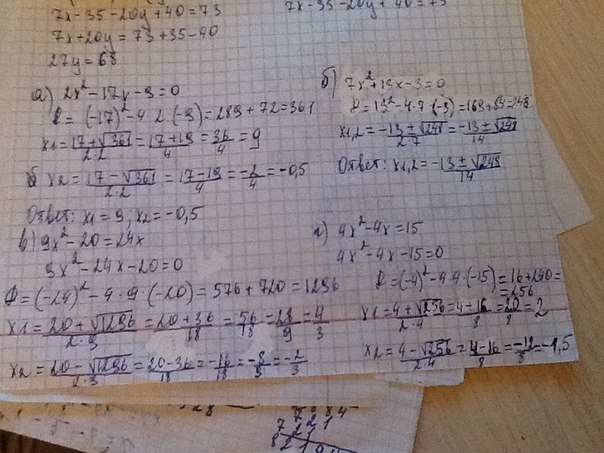 7x-35-20y+40=73
7x+20y=73+35-40
27y=68
7x-35-20y+40=73
а) 2x²-17x-9=0
D=(-17)²-4·2·(-9)=289+72=361
x1=17+√361/2·2=17+19/4=36/4=9
x2=17-√361/2·2=17-19/4=-2/4=-0,5
Ответ: x1=9; x2=-0,5
б) 7x²+13x-3=0
D=13²-4·7·(-3)=169+84=248
x1,2=-13±√248/2·7=-13±√248/14
Ответ: x1,2=-13±√248/14
в) 9x²-20=24x
9x²-24x-20=0
D=(-24)²-4·9·(-20)=576+720=1296
x1=20+√1296/2·9=20+36/18=56/18=28/9=4/3
x2=20-√1296/2·9=20-36/18=-16/18=-8/9=-2/3
г) 4x²-4x=15
4x²-4x-15=0
D=(-4)²-4·4·(-15)=16+240=
=256
x1=4+√256/2·4=4+16/8=20/8=2
x2=4-√256/2·4=4-16/8=-12/8=-1,5